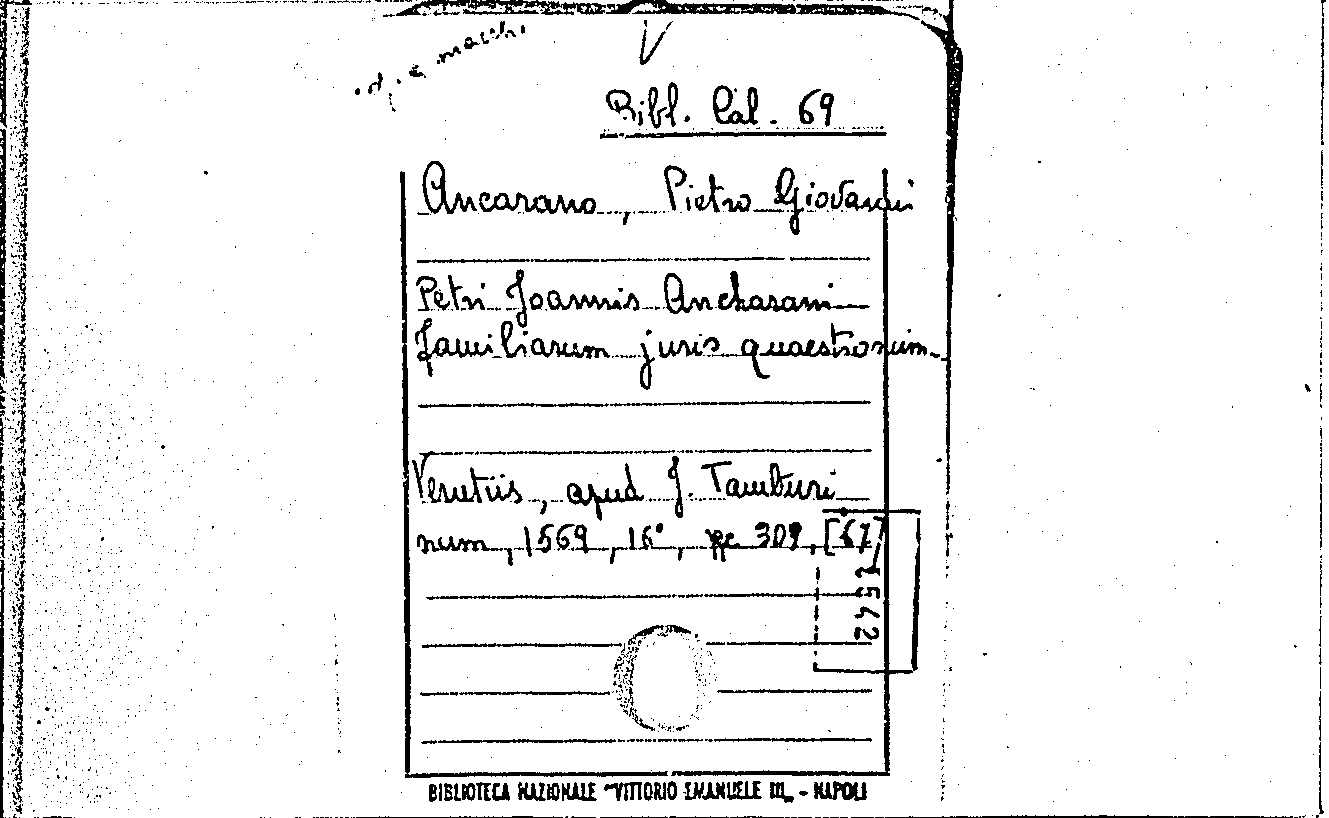 V
Bibl. Cal. 69
Ancarano, Pietro Giovanni
Petri Joannis Ancharani
familiarum juris quaestionum
Venetiis, apud J. Tamburi
num, 1569, 16°, pp 309, [67]
2542
BIBLIOTECA NAZIONALE "VITTORIO EMANUELE III" - NAPOLI